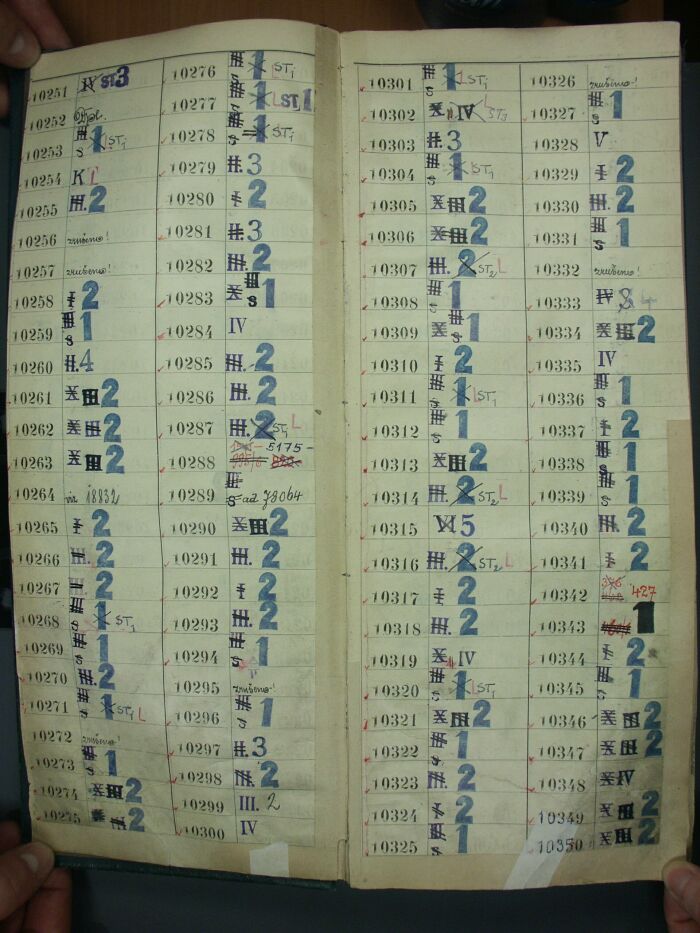 10251 IV ST3
10252 Odpl.
10253 III S 1 ST1
10254 K T
10255 III. 2
10256 zrušeno!
10257 zrušeno!
10258 I 2
10259 III S 1
10260 II. 4
10261 X III 2
10262 X III 2
10263 X III 2
10264 viz 18832
10265 I 2
10266 III. 2
10267 II. 2
10268 III S 1 ST1
10269 III S 1
10270 III. 2
10271 III S 1 ST1 L
10272 zrušeno!
10273 III S 1
10274 X III 2
10275 2
10276 III S 1 L ST1
10277 III S 1 L ST1
10278 III S 1 ST1
10279 II. 3
10280 I 2
10281 II. 3
10282 III. 2
10283 X III S 1
10284 IV
10285 III. 2
10286 III. 2
10287 III. 2 ST1 L
10288 5175-
10289 III S az 78064
10290 X III 2
10291 III. 2
10292 I 2
10293 III. 2
10294 III S 1
10295 zrušeno!
10296 III S 1
10297 II. 3
10298 III. 2
10299 III. 2
10300 IV
10301 III S 1 L ST1
10302 X IV L ST3
10303 II. 3
10304 III S 1 L ST1
10305 X III 2
10306 X III 2
10307 III. 2 ST2 L
10308 III S 1
10309 X III S 1
10310 I 2
10311 III S 1 L ST1
10312 III S 1
10313 X III 2
10314 III. 2 ST2 L
10315 VI 5
10316 III. 2 ST2 L
10317 I 2
10318 III. 2
10319 X IV
10320 III S 1 L ST1
10321 X III 2
10322 III S 1
10323 III. 2
10324 I 2
10325 III S 1
10326 zrušeno!
10327 III S 1
10328 V
10329 I 2
10330 III. 2
10331 III S 1
10332 zrušeno!
10333 IV 4
10334 X III 2
10335 IV
10336 III S 1
10337 I 2
10338 III S 1
10339 III S 1
10340 III. 2
10341 I 2
10342 427
10343 1
10344 I 2
10345 III S 1
10346 X III 2
10347 X III 2
10348 X IV
10349 X III 2
10350 X III 2